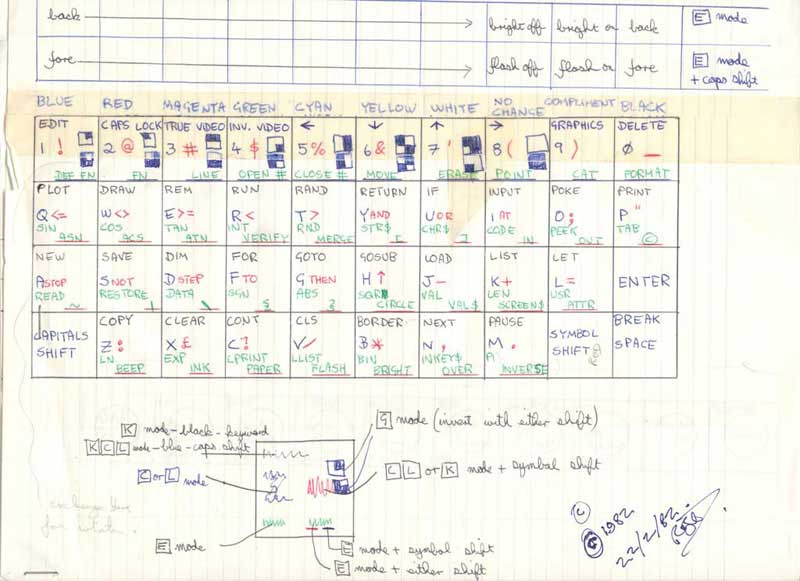 back bright off bright on back E mode
fore flash off flash on fore E mode
+ caps shift
BLUE RED MAGENTA GREEN CYAN YELLOW WHITE NO CHANGE COMPLIMENT BLACK
EDIT CAPS LOCK TRUE VIDEO INV. VIDEO ← ↓ ↑ → GRAPHICS DELETE
1 ! 2 @ 3 # 4 $ 5 % 6 & 7 ' 8 ( 9 ) 0 _
DEF FN FN LINE OPEN # CLOSE # MOVE ERASE POINT CAT FORMAT
PLOT DRAW REM RUN RAND RETURN IF INPUT POKE PRINT
Q <= W <> E >= R < T > Y AND U OR I AT O ; P "
SIN ASN COS ACS TAN ATN INT VERIFY RND MERGE STR$ [ CHR$ ] CODE IN PEEK OUT TAB ©
NEW SAVE DIM FOR GOTO GOSUB LOAD LIST LET
A STOP S NOT D STEP F TO G THEN H ↑ J - K + L = ENTER
READ ~ RESTORE | DATA \ SGN { ABS } SQR CIRCLE VAL VAL$ LEN SCREEN$ USR ATTR
CAPITALS SHIFT COPY CLEAR CONT CLS BORDER NEXT PAUSE SYMBOL SHIFT BREAK SPACE
Z : X £ C ? V / B * N , M .
LN BEEP EXP INK LPRINT PAPER LLIST FLASH BIN BRIGHT INKEY$ OVER PI INVERSE
G mode (invert with either shift)
K mode-black-keyword
K C L mode-blue-caps shift
C or L mode
C L or K mode + symbol shift
E mode
E mode + symbol shift
E mode + either shift
© 1982
22/2/82